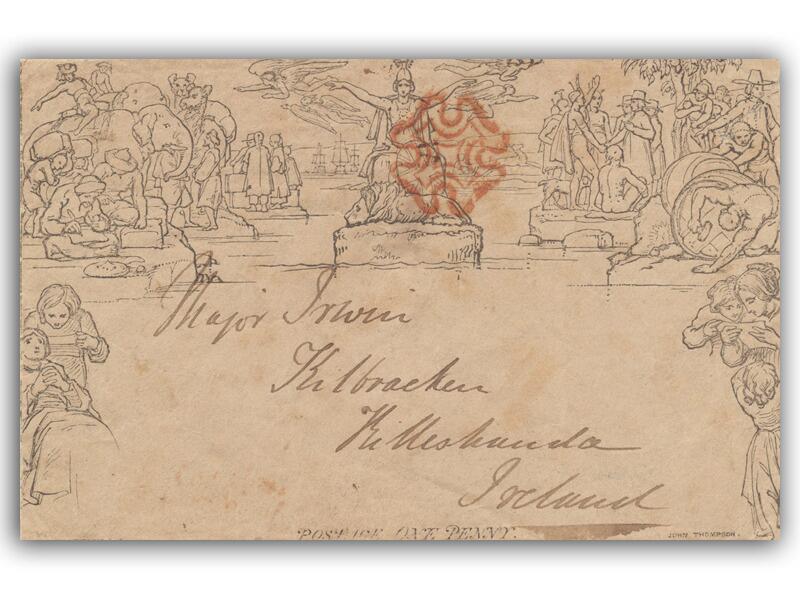 Major Irwin
Kilbracken
Killeshanda
Ireland
POSTAGE ONE PENNY.
JOHN THOMPSON.